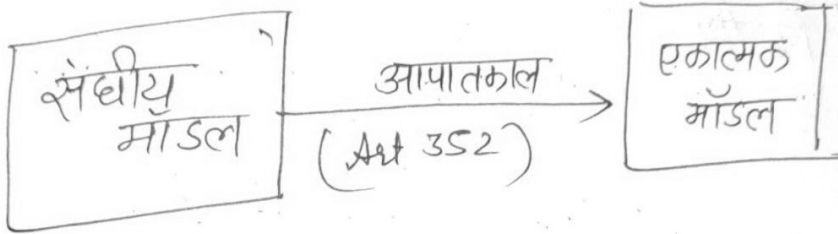 संघीय
मॉडल
आपातकाल
(Art 352)
एकात्मक
मॉडल